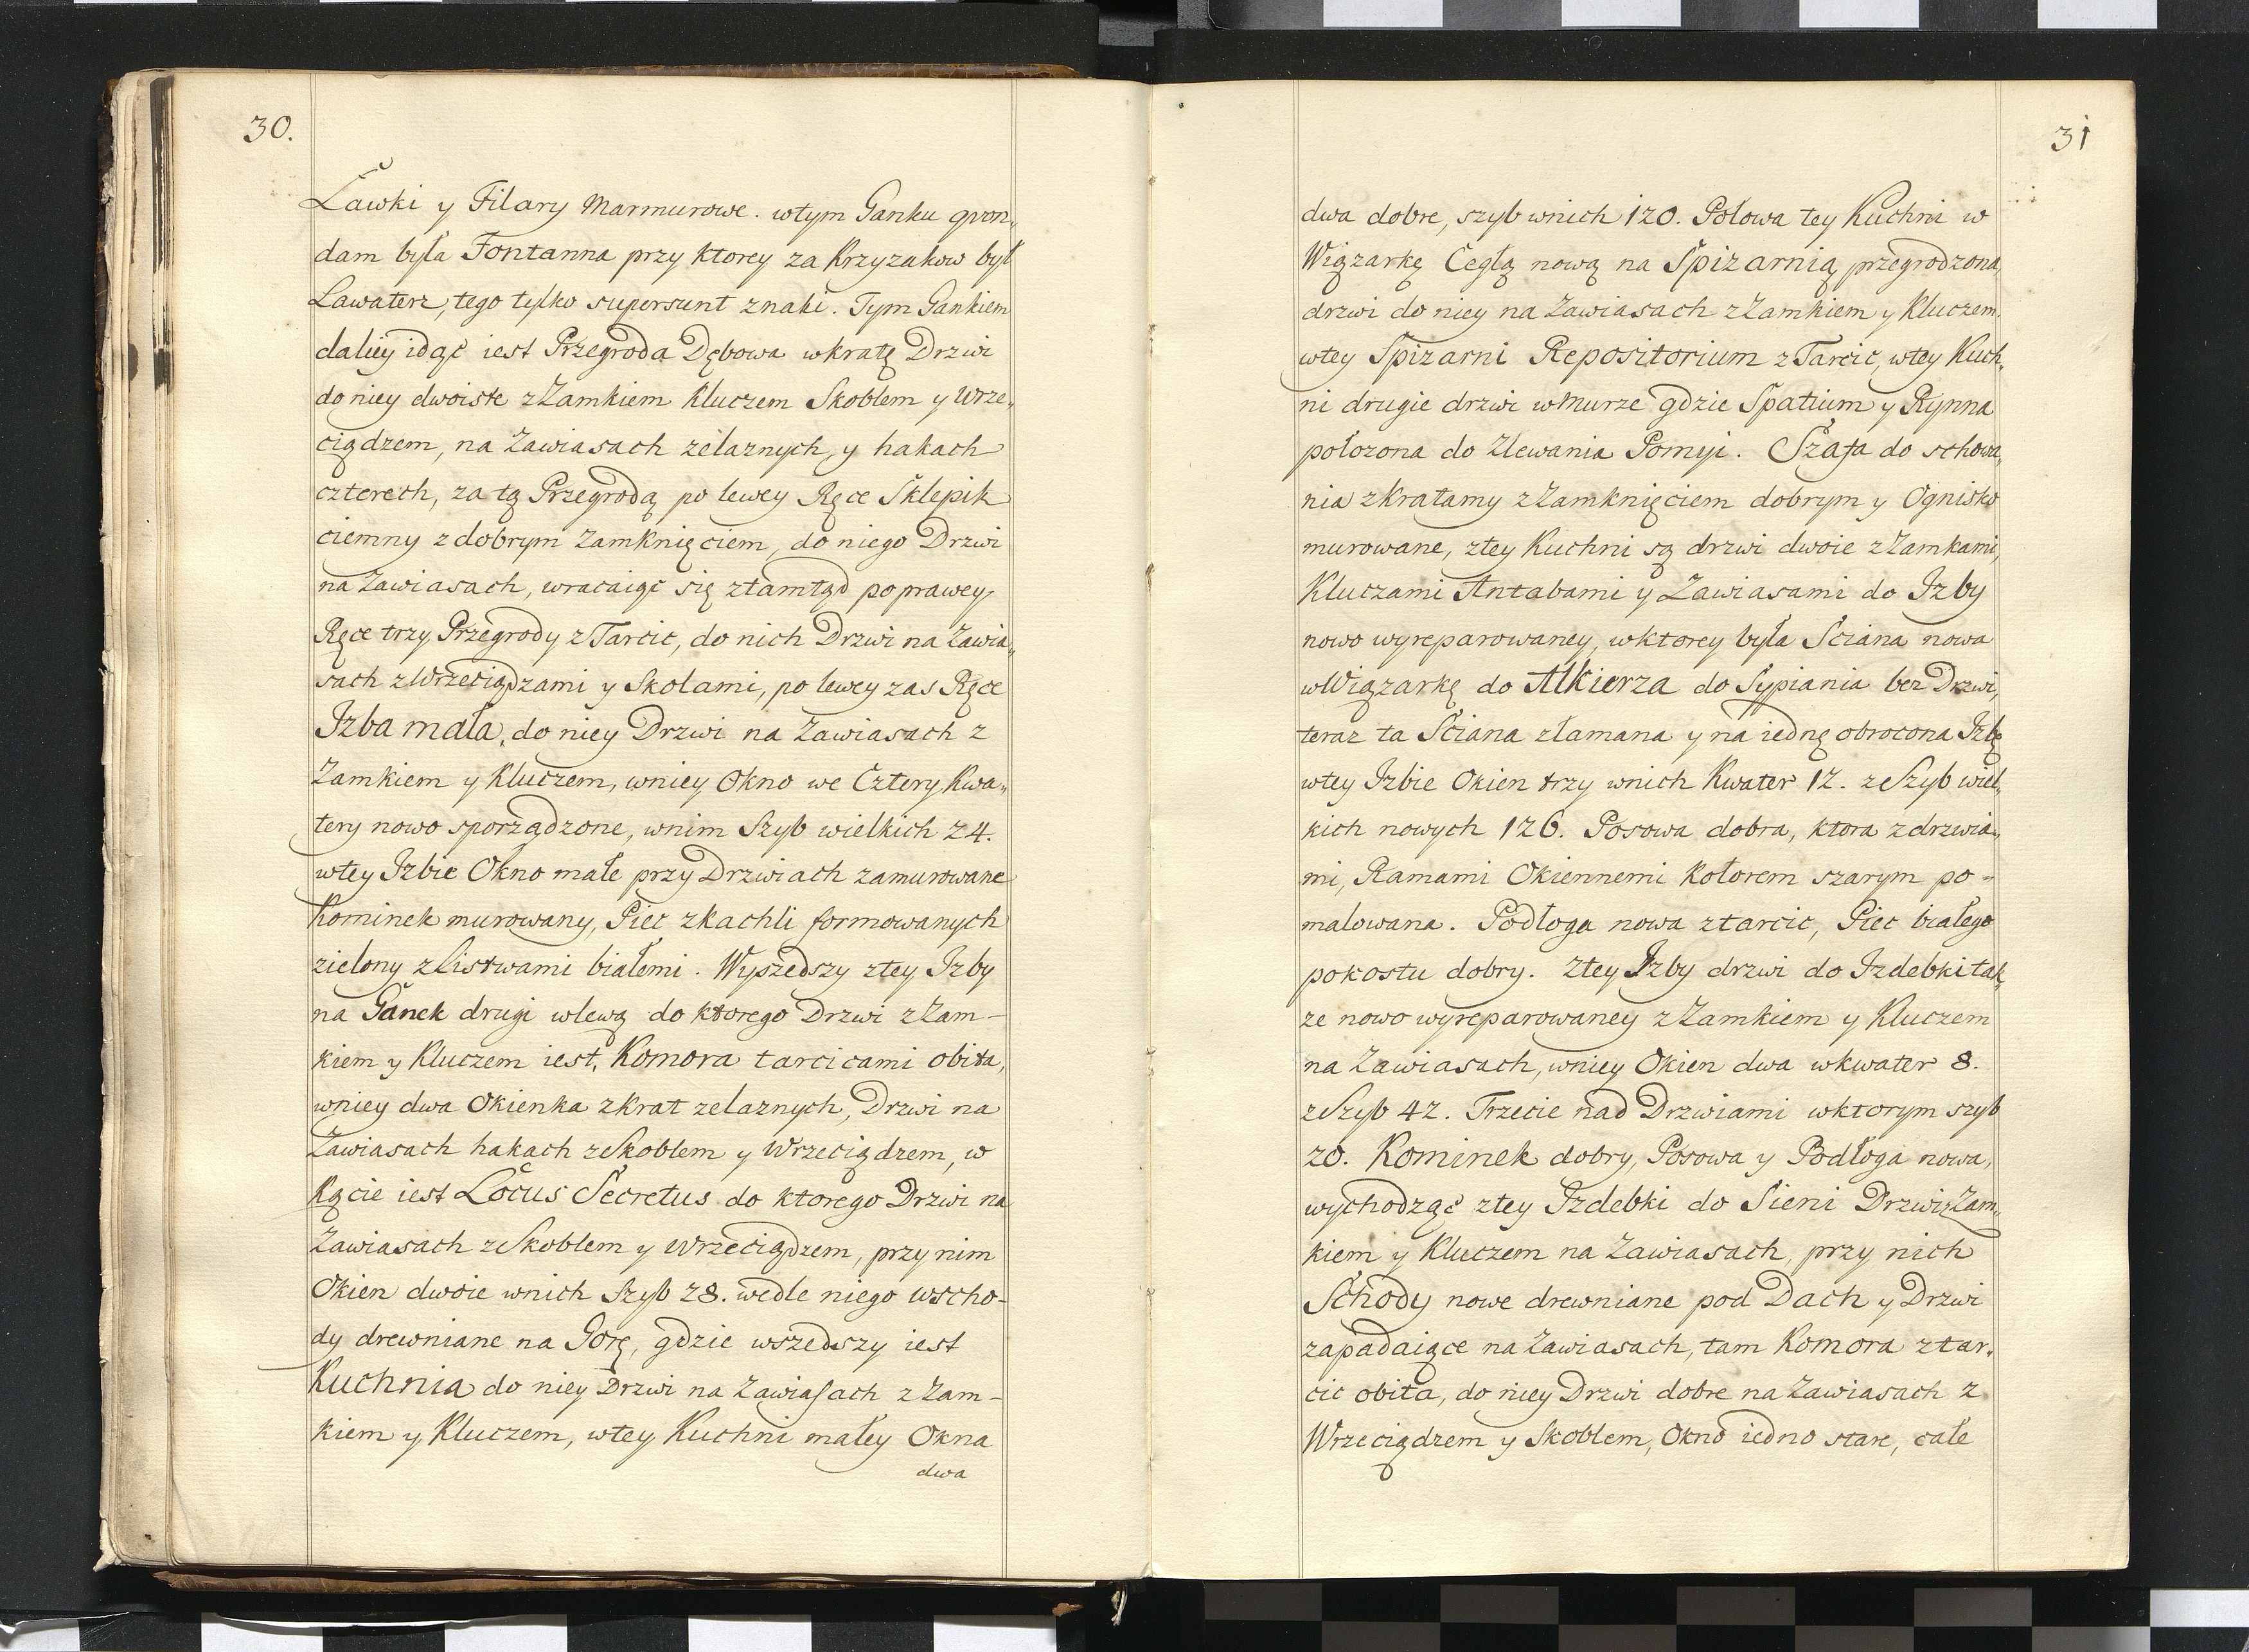 30.
Ławki y Filary Marmurowe. wtym Ganku qvon„
dam była Fontanna przy ktorey za Krzyzakow był
Lawaterz, tego tylko supersunt znaki. Tym Gankiem
daliey idąc iest Przegroda Dębowa wkratę Drzwi
do niey dwoiste zZamkiem Kluczem Skoblem y Wrze„
ciądzem, na Zawiasach zelaznych, y hakach
czterech, za tą Przegrodą po lewey Ręce Sklepik
ciemny zdobrym Zamknięciem, do niego Drzwi
na Zawiasach, wracaiąc się ztamtąd po prawey
Ręce trzy Przegrody zTarcic, do nich Drzwi na Zawia„
sach zWrzeciądzami y Skolami, po lewey zas Ręce
Izba mała, do niey Drzwi na Zawiasach z
Zamkiem y Kluczem, wniey Okno we Cztery Kwa„
tery nowo sporządzone, wnim Szyb wielkich 24.
wtey Izbie Okno małe przy Drzwiach zamurowane
Kominek murowany, Piec zkachli formowanych
zielony zListwami białemi. Wyszedszy ztey Izby
na Ganek drugi wlewą do ktorego Drzwi zZam-
kiem y Kluczem iest, Komora tarcicami obita,
wniey dwa Okienka zkrat zelaznych, Drzwi na
Zawiasach hakach zeSkoblem y Wrzeciądzem, w
Kącie iest Locus Secretus do ktorego Drzwi na
Zawiasach zeSkoblem y Wrzeciądzem, przy nim
Okien dwoie wnich Szyb 28. wedle niego wscho-
dy drewniane na Gorę, gdzie wszedszy iest
Kuchnia do niey Drzwi na Zawiasach z Zam-
kiem y Kluczem, wtey Kuchni małey Okna
dwa
31
dwa dobre, szyb wnich 120. Połowa tey Kuchni w
Wiązarkę Cegłą nową na Spizarnią przegrodzona,
drzwi do niey na Zawiasach zZamkiem y Kluczem.
wtey Spizarni Repositorium zTarcic, wtey Kuch„
ni drugie drzwi wMurze gdzie Spatium y Rynna
połozona do Zlewania Pomyi. Szafa do schowa„
nia zkratamy zZamknięciem dobrym y Ognisko
murowane, ztey Kuchni są drzwi dwoie zZamkami,
Kluczami Antabami y Zawiasami do Izby
nowo wyreparowaney, wktorey była Sciana nowa
wWiązarkę do Alkierza do Sypiania bez Drzwi,
teraz ta Sciana złamana y na iednę obrocona Izbę
wtey Izbie Okien trzy wnich Kwater 12. zeSzyb wiel„
kich nowych 126. Posowa dobra, ktora zdrzwia„
mi, Ramami Okiennemi Kolorem szarym po-
malowana. Podłoga nowa ztarcic, Piec białego
pokostu dobry. Ztey Izby drzwi do Izdebki tak„
ze nowo wyreparowaney zZamkiem y Kluczem
na Zawiasach, wniey Okien dwa wkwater 8.
zeSzyb 42. Trzecie nad Drzwiami wktorym szyb
20. Kominek dobry, Posowa y Podłoga nowa,
wychodząc ztey Izdebki do Sieni Drzwi zZam„
kiem y Kluczem na Zawiasach, przy nich
Schody nowe drewniane pod Dach y Drzwi
zapadaiące na Zawiasach, tam Komora ztar„
cic obita, do niey Drzwi dobre na Zawiasach z
Wrzeciądzem y Skoblem, Okno iedno stare, całe